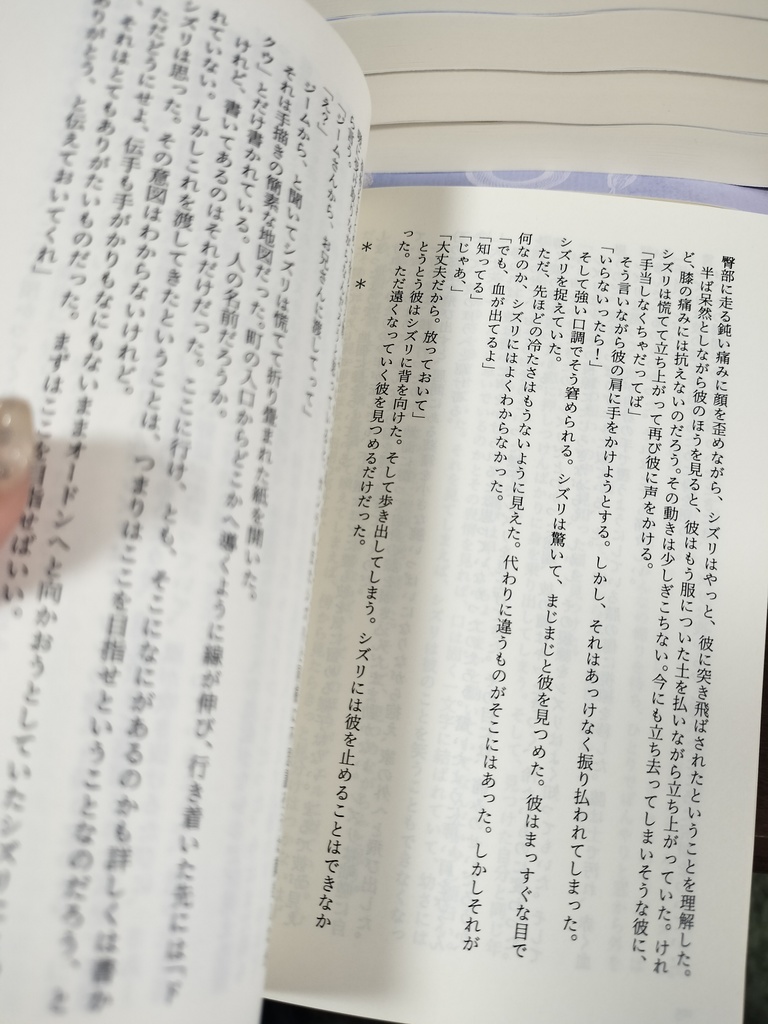 臀部に走る鈍い痛みに顔を歪めながら、シズリはやっと、彼に突き飛ばされたということを理解した。
半ば呆然としながら彼のほうを見ると、彼はもう服についた土を払いながら立ち上がっていた。けれ
ど、膝の痛みには抗えないのだろう。その動きは少しぎこちない。今にも立ち去ってしまいそうな彼に、
シズリは慌てて立ち上がって再び彼に声をかける。
「手当しなくちゃだってば」
そう言いながら彼の肩に手をかけようとする。しかし、それはあっけなく振り払われてしまった。
「いらないったら！」
そして強い口調でそう窘められる。シズリは驚いて、まじまじと彼を見つめた。彼はまっすぐな目で
シズリを捉えていた。
ただ、先ほどの冷たさはもうないように見えた。代わりに違うものがそこにはあった。しかしそれが
何なのか、シズリにはよくわからなかった。
「でも、血が出てるよ」
「知ってる」
「じゃあ、」
「大丈夫だから。放っておいて」
とうとう彼はシズリに背を向けた。そして歩き出してしまう。シズリには彼を止めることはできなか
った。ただ遠くなっていく彼を見つめるだけだった。
＊　＊
「ジームさんから、お兄さんに渡してって」
「え？」
ジームから、と聞いてシズリは慌てて折り畳まれた紙を開いた。
それは手描きの簡素な地図だった。町の入口からどこかへ導くように線が伸び、行き着いた先には「ド
クウ」とだけ書かれている。人の名前だろうか。
けれど、書いてあるのはそれだけだった。ここに行け、とも、そこになにがあるのかも詳しくは書か
れていない。しかしこれを渡してきたということは、つまりはここを目指せということなのだろう、と
シズリは思った。その意図はわからないけれど。
ただどうにせよ、伝手も手がかりもなにもないままオードンへと向かおうとしていたシズリに
、それはとてもありがたいものだった。まずはここを目指せばいい。
ありがとう、と伝えておいてくれ」